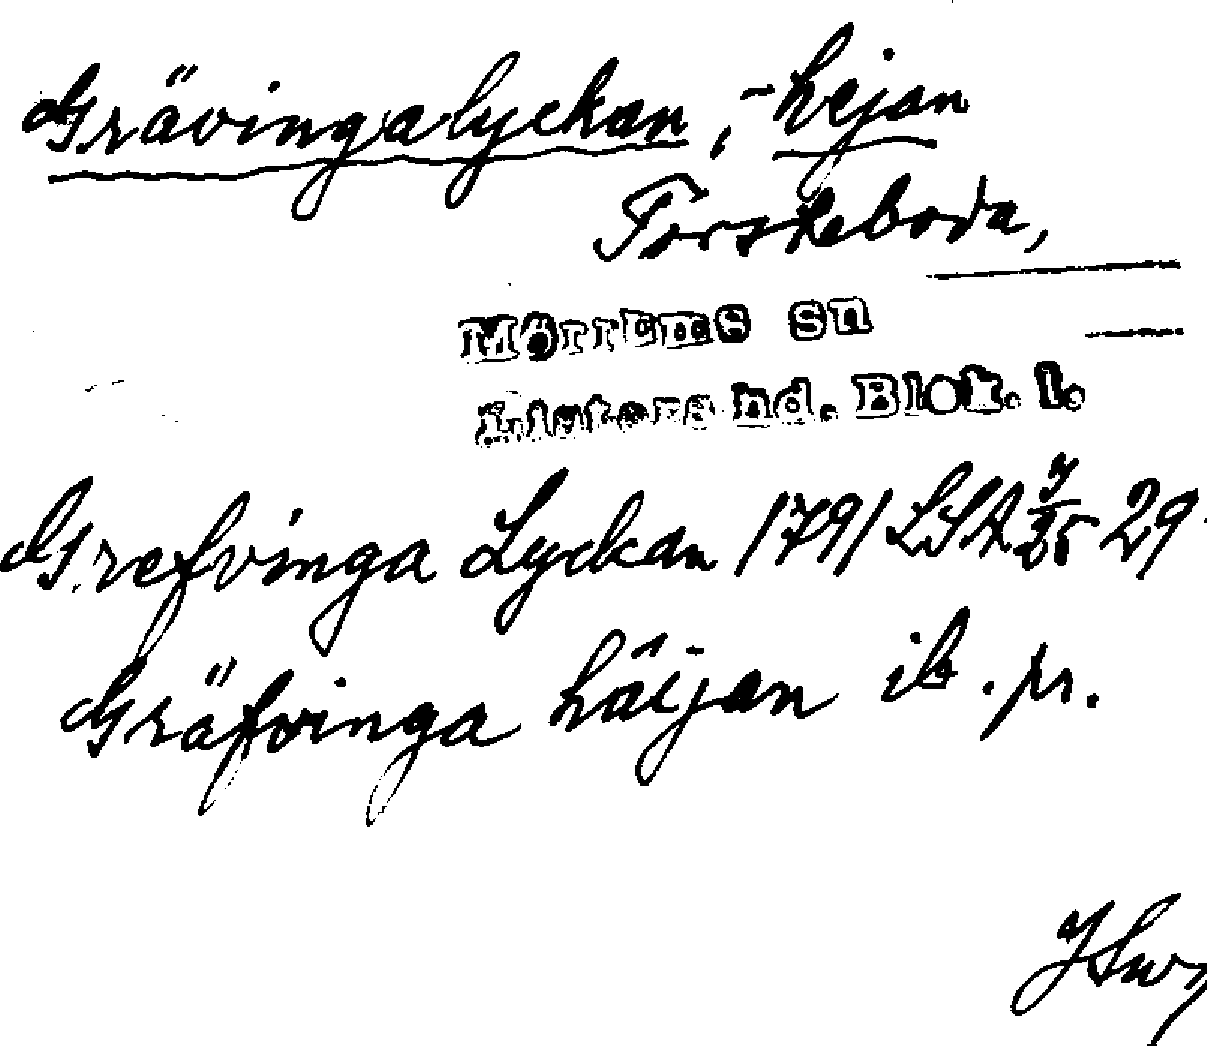 Grävingalyckan, -hejan
Forskeboda,
Mörrums sn
Listers hd. Blek. l.
Grefvinga Lyckan 1791 LSA 29
Gräfvinga häijan ib. pr.